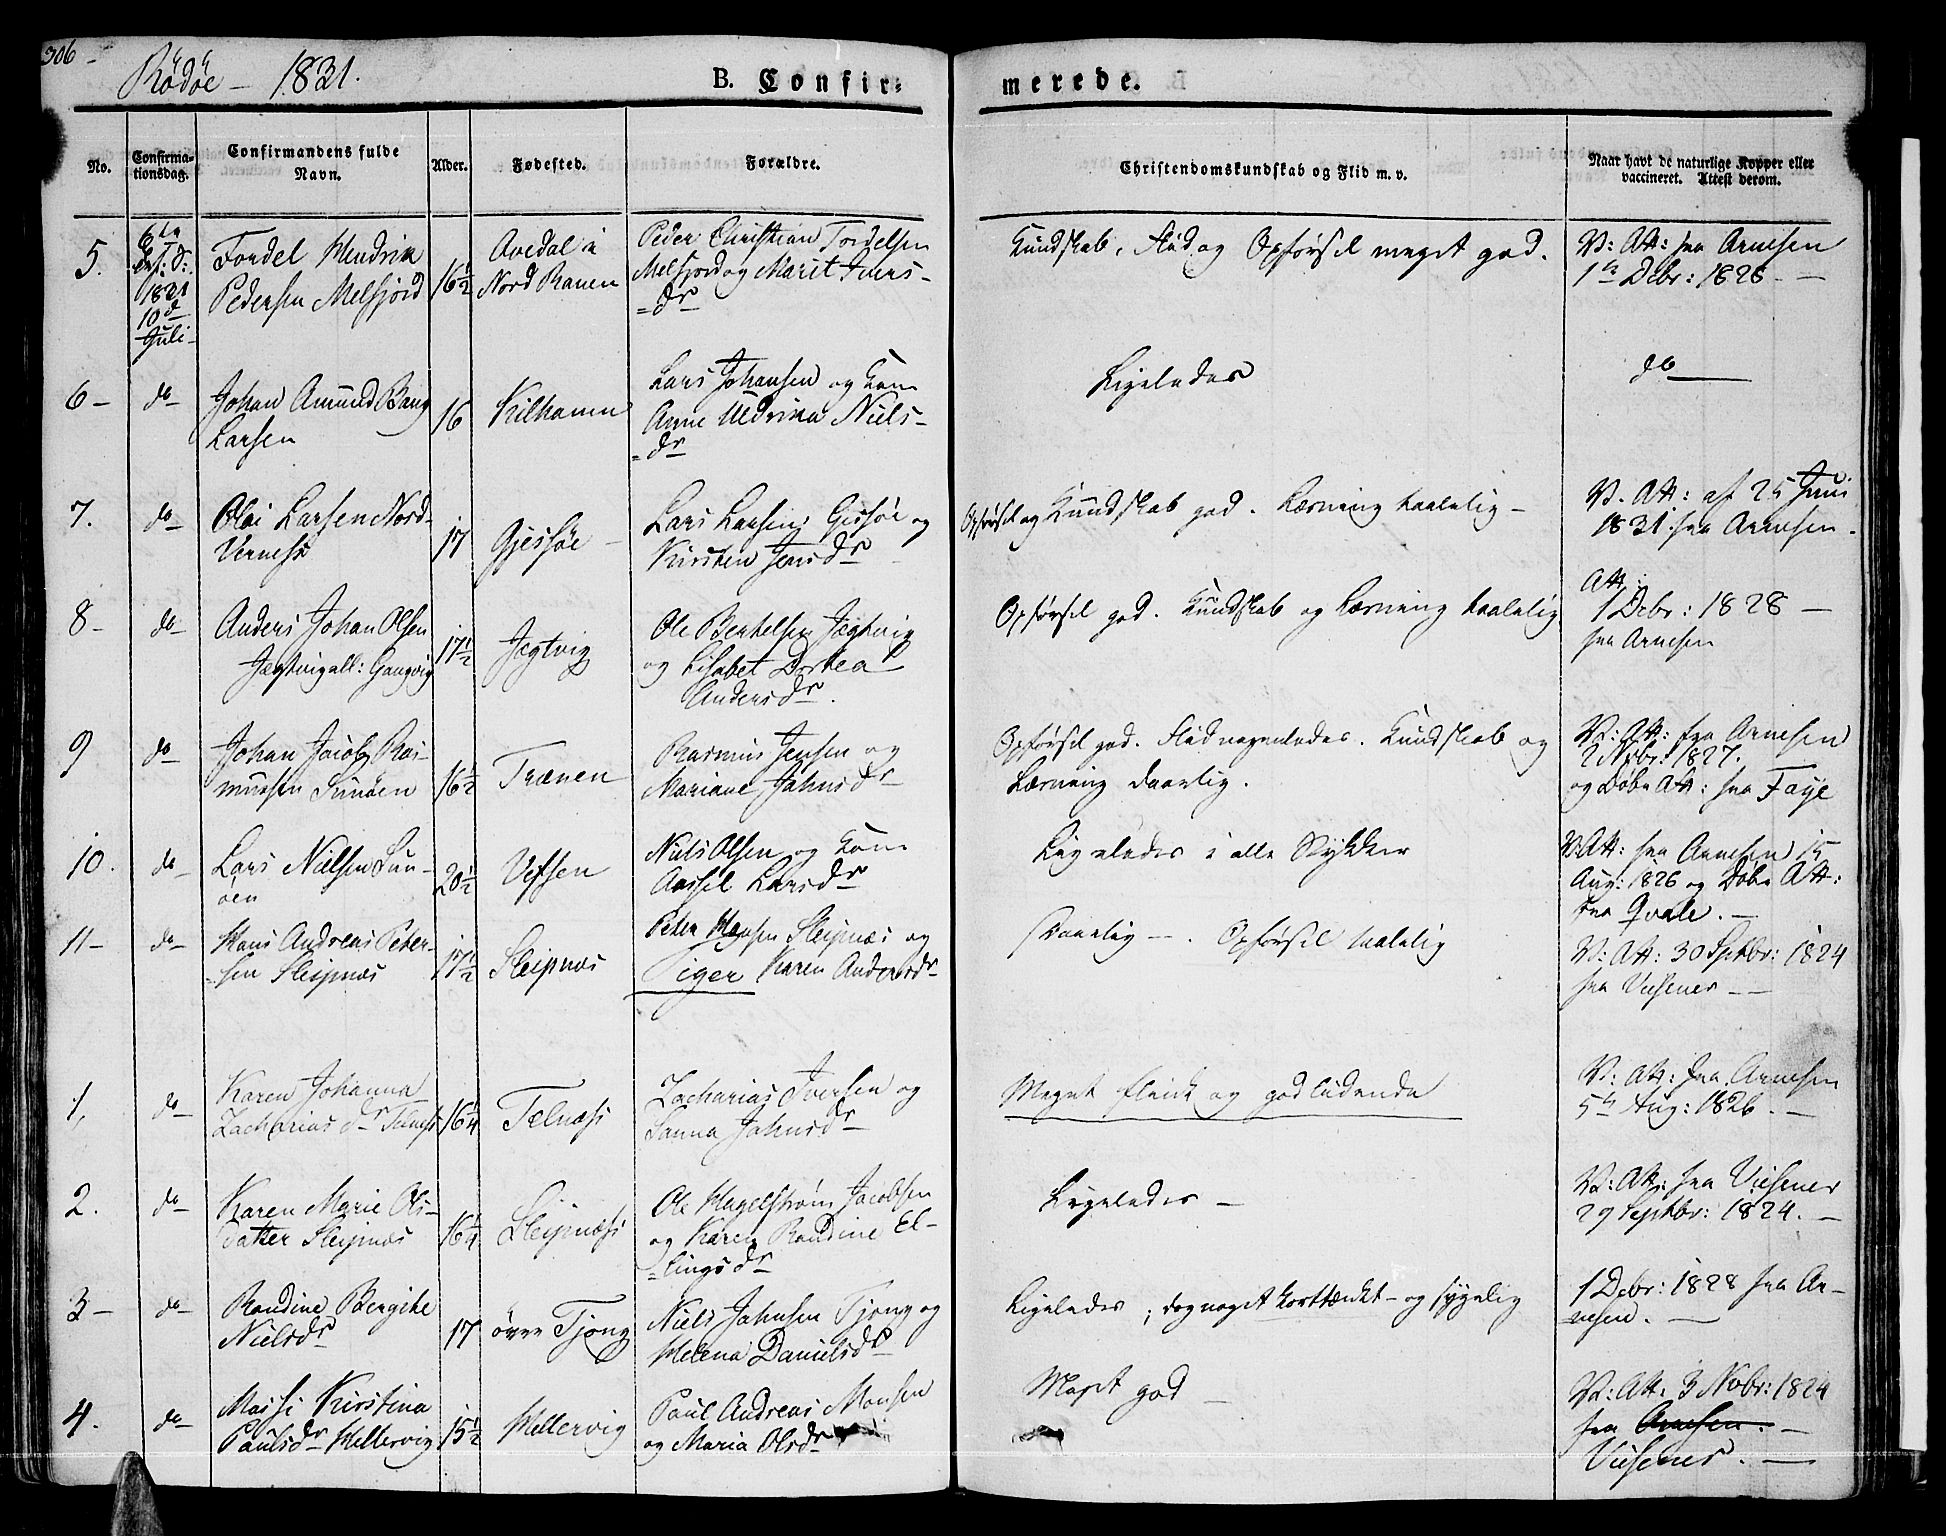 306 -
Rödöe - 1831.
B. Confir=
merede.
No.
Confirma-
tionsdag.
Confirmandens fulde
Navn.
Alder.
Fødested.
Forældre.
Christendomskundskab og Flid m. v.
Naar havt de naturlige Kopper eller
vaccineret. Attest derom.
5.
1831
10d
Juli -
Tordel Hendrik
Pedersen Melfjord
16½
Avedal i
Nord Ranen
Peder Christian Tordelsen
Melfjord og Marit Ivers-
=dr
Kundskab, Flid og Opførsel meget god.
V: Att: fra Arnesen
1ste Debr: 1828 -
6 -
do
Johan Amund Bang
Larsen
16
Kilhavn
Lars Johansen og Kone
Anne Uldrika Niels-
=dr
Ligeledes
do
7.
do
Oloi Larsen Nord-
Verness
17
Gjessøe -
Lars Larsen Gissøe og
Kirsten Jensdr
Opførsel og Kundskab god. Læsning taalelig -
V. Att: af 25 Juni
1831 fra Arnesen.
8 -
do
Anders Johan Olsen
Jægtvig all: Gangvig
17½
Jægtvig
Ole Bertelsen Jægtvig
og Lisabet Dortea
Andersdr.
Opførsel god. Kundskab og Læsning taalelig
Att:
1 Debr: 1828 -
fra Arnesen
9
do
Johan Jacob Ras-
mussen Sunöen
16½
Trænen
Rasmus Jensen og
Mariane Johnsdr
Opførsel god. Flid nogenledes. Kundskab og
Læsning daarlig.
V: Att: fra Arnesen
2 Nvbr: 1827.
og Døbe Att: fra Faye
10.
do
Lars Nielsen Sun-
öen
20½
Vefsen
Niels Olsen og Kone
Aassel Larsdr
Ligeledes i alle Stykker
V: Att: fra Arnesen 15
Aug: 1826 og Døbe Att:
fra Qvale. -
11 -
do
Hans Andreas Peter-
=sen Sleipnæs
17½
Sleipnæs
Peter Hansen Sleipnæs og
Piger Karen Andersdr
Daarlig -. Opførsel taalelig
V: Att: 30 Sptbr: 1824
fra Viesener -
1,
do
Karen Johanna
Zachariasdr Telness
16¼
Telnæss
Zacharias Iversen og
Sanna Johnsdr
Meget flink og godlydende
V: Att: fra Arnesen
5te Aug: 1826. -
2.
do
Karen Marie Ols-
datter Sleipnæs
16¼
Sleipnæss
Ole Hagelstrøm Jacobsen
og Karen Randine El-
=lingsdr
Ligeledes -
V: Att: fra Viesener
29 Septbr: 1824. -
3 -
do
Randine Bergite
Nielsdr
17
övre Tjong
Niels Johnsen Tjong og
Helena Danielsdr
Ligeledes; dog noget korttænkt - og sygelig
1 Debr: 1828 fra Ar-
=nesen. -
4.
do
Massi Kirstina
Paulsdr Hellervig
15½
Hellervig
Paul Andreas Monsen
og Maria Olsdr
Meget god -
V: Att: 3 Nobr: 1824
fra Arnesen. -
Viesener. -